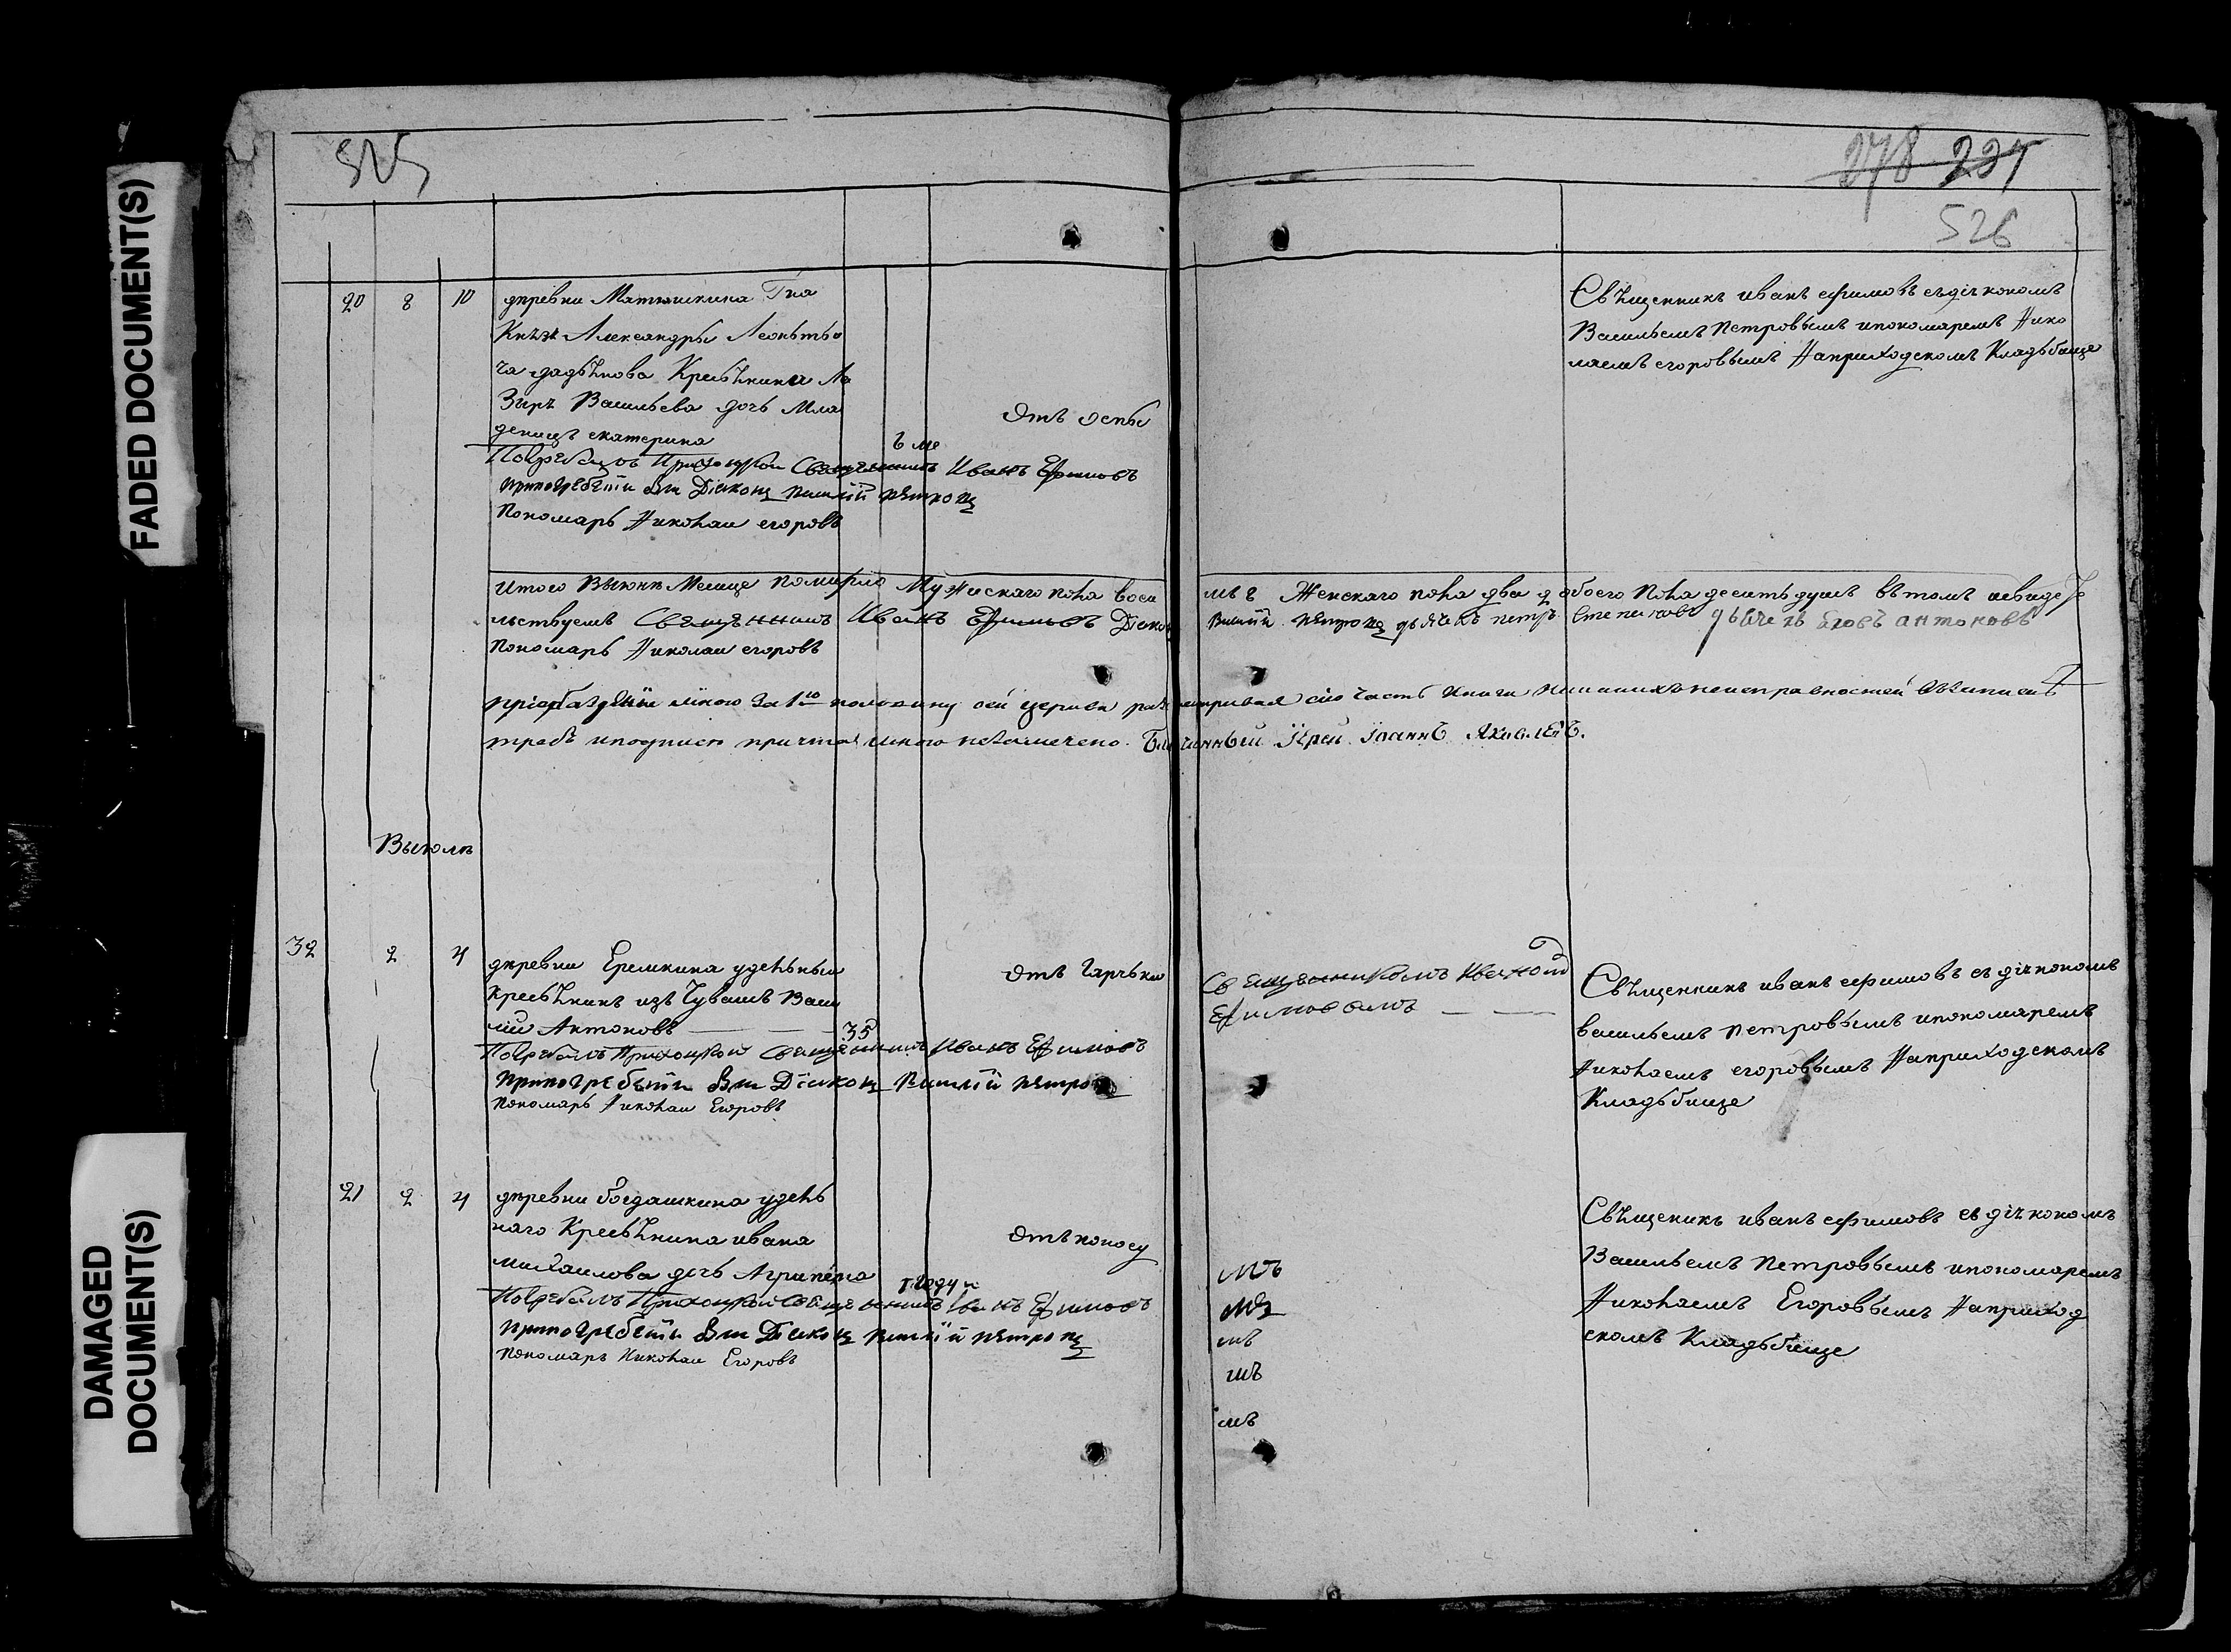 FADED DOCUMENT(S)
DAMAGED
DOCUMENT(S)
525
278 237
526
20 8 10 деревни Матюшкина Гна
Князя Александры Леонтьи
ча дадьянова Кресьянина Ла
Зыръ Васильева дочь Мла
денецъ екатерина
6 ме
отъ оспы
Погребалъ Приходской Священникъ Иванъ Ефимовъ
при погребении был Диаконъ василий петровъ
Пономарь Николаи егоровъ
Священникъ иванъ ефимовъ съ диякономъ
Васильемъ Петровымъ ипономаремъ Нико
лаемъ егоровымъ Наприходскомъ Кладьбище
Итого Выюне Месеце померло Мужескаго пола восе
мь 8 Женскаго пола два 2 обоего пола десеть душъ вътомъ исвиде
льствуемъ Священникъ Иванъ Ефимовъ Диаконъ
Василий петровъ дьячекъ петръ степановъ дьячекъ антоновъ
Пономарь Николаи егоровъ
мною за 1ю половину сей церкви разсматривая сию часть книги никакихъ неисправностей въ записи
требъ иподписи причта мною незамечено. Благочинный Иерей Иоаннъ Яковлевъ.
Выюле
32 2 4 деревни Еремкина удельныи
Кресьянинъ изъ Чувашъ Васи
лии Антоновъ
35
отъ Гарячки
Погребалъ Приходской Священникъ Иванъ Ефимовъ
При погребении был Диаконъ Василий петровъ
Пономарь Николаи Егоровъ
Священникомъ Иваномъ
Ефимовымъ
Священникъ иванъ ефимовъ съ диякономъ
васильемъ петровымъ ипономаремъ
Николаемъ егоровымъ Наприходскомъ
Кладьбище
21 2 4 деревни богдашкина удель
наго Кресьянина ивана
михаилова дочь Агрипена
1 году
отъ поносу
Погребалъ Приходской Священникъ Иванъ Ефимовъ
При погребении был Диаконъ василий петровъ
Пономарь Николаи Егоровъ
мъ
мъ
мъ
мъ
мъ
Священикъ иванъ ефимовъ съ диякономъ
Васильемъ Петровымъ ипономаремъ
Николаемъ Егоровымъ Наприход
скомъ Кладьбище